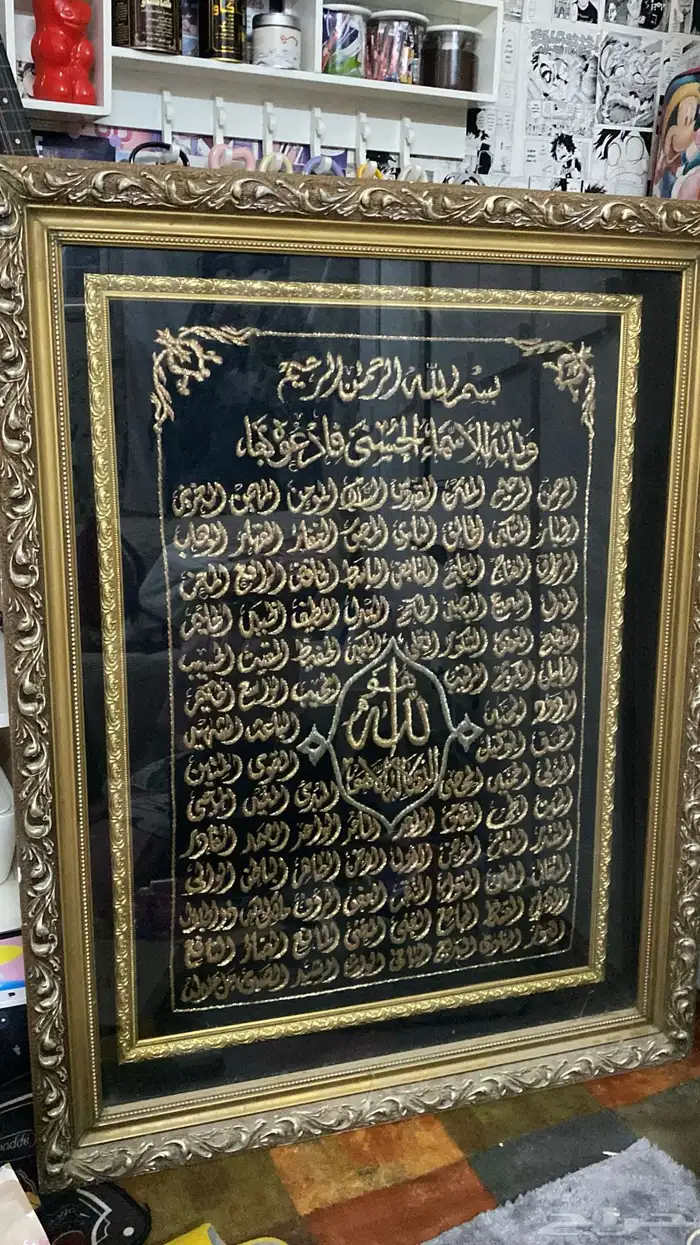 بسم الله الرحمن الرحيم
ولله الأسماء الحسنى فادعوه بها
الرحمن الرحيم الملك القدوس السلام المؤمن المهيمن العزيز
الجبار المتكبر الخالق البارئ المصور الغفار القهار الوهاب
الرزاق الفتاح العليم القابض الباسط الخافض الرافع المعز
المذل السميع البصير الحكم العدل اللطيف الخبير الحليم
العظيم الغفور الشكور العلي الكبير الحفيظ المقيت الحسيب
الجليل الكريم الرقيب المجيب الواسع الحكيم
الودود المجيد الباعث الشهيد
الله
الحق الوكيل القوي المتين
الولي الحميد المحصي المبدئ المعيد المحيي
المميت الحي القيوم الواجد الماجد الواحد الصمد القادر
المقتدر المقدم المؤخر الأول الآخر الظاهر الباطن الوالي
المتعال البر التواب المنتقم العفو الرؤوف مالك الملك ذو الجلال
والإكرام المقسط الجامع الغني المغني المانع الضار النافع
النور الهادي البديع الباقي الوارث الرشيد الصبور
حراج